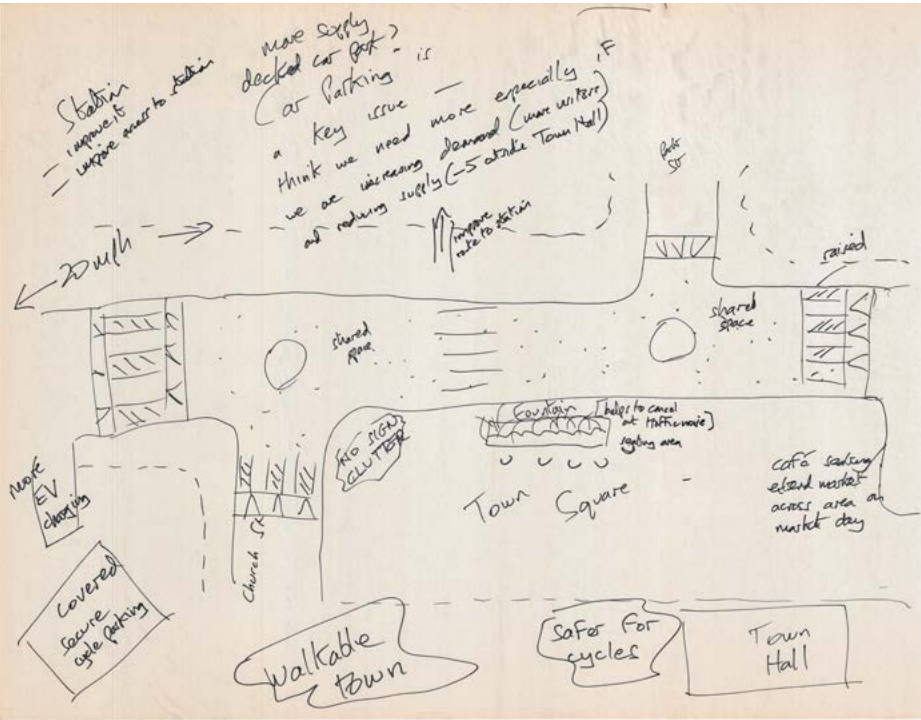 Station
— improve it
— improve access to station
more supply
decked car park?
Car Parking is
a key issue —
think we need more especially if
we are increasing demand (more visitors)
and reducing supply (-5 outside Town Hall)
20 mph
improve
route to station
St
raised
shared
space
shared
space
Fountain [helps to cancel
out traffic noise]
seating area
NO SIGN
CLUTTER
Town Square
café seating
extend market
across area on
market day
more
EV
charging
Church St
covered
secure
cycle parking
Walkable
town
Safer for
cycles
Town
Hall